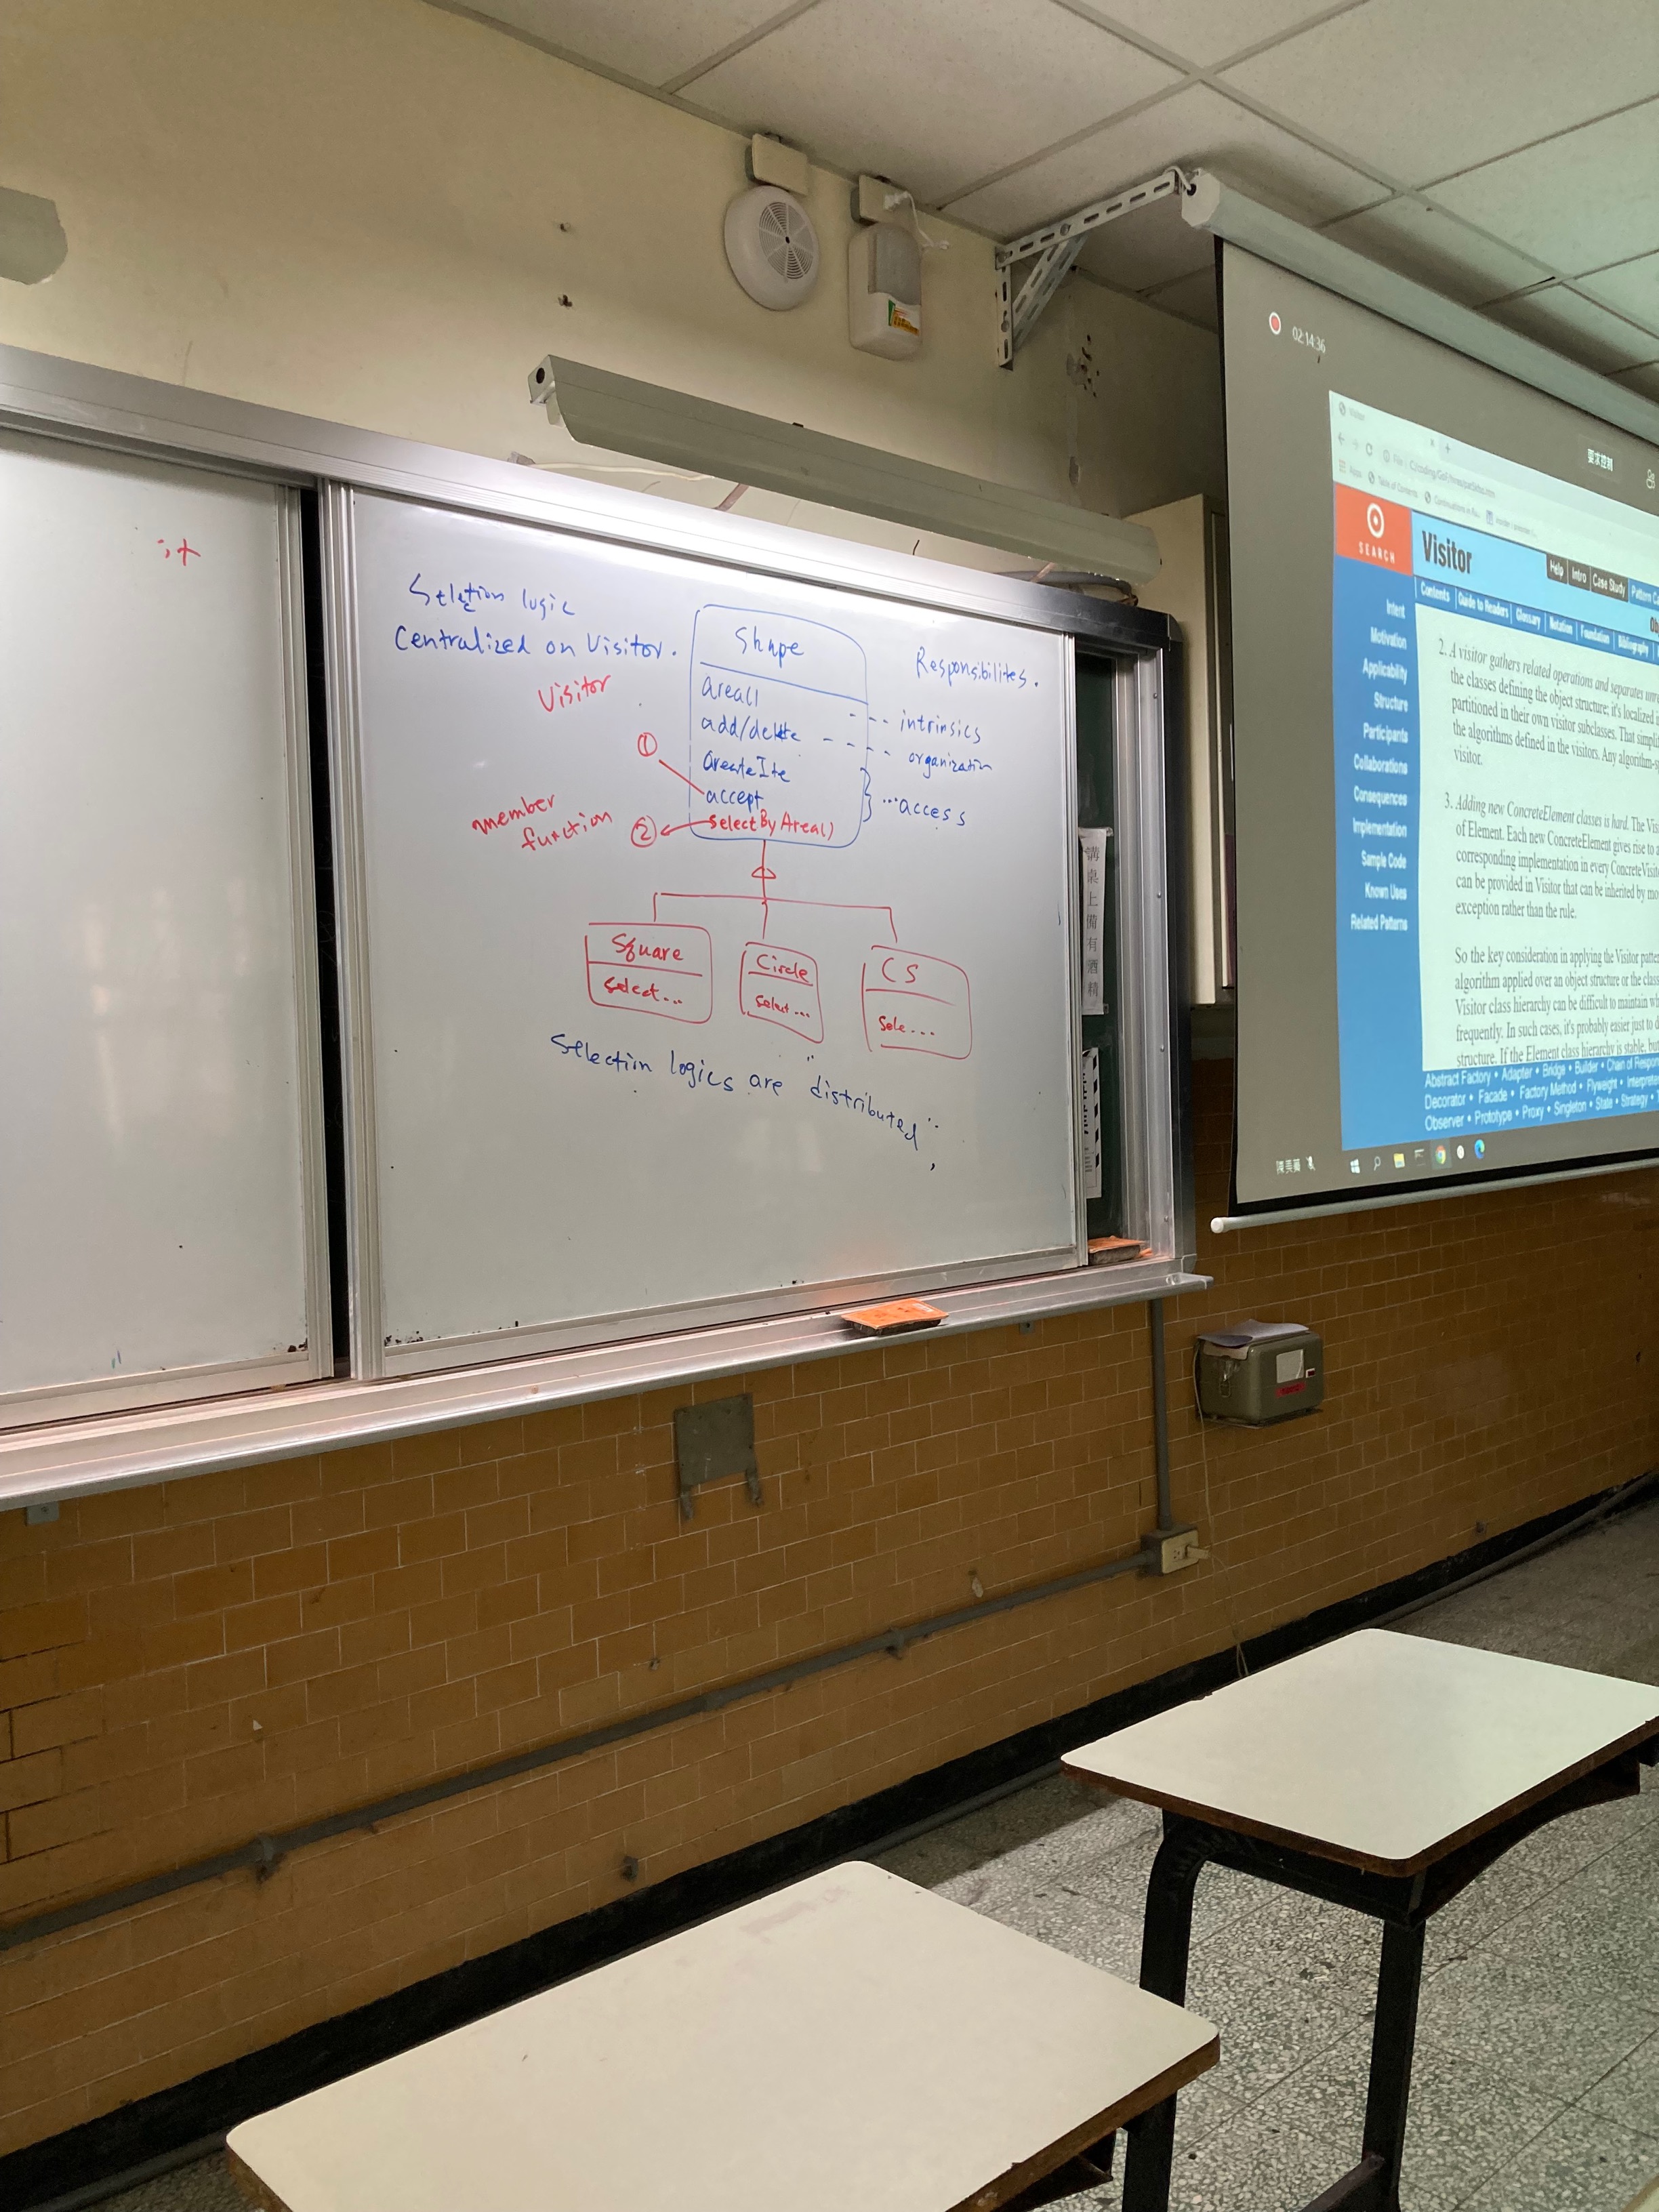 it
Selection logic
Centralized on Visitor.
Visitor
①
member
function
②
Shape
area()
add/delete
createIte
accept
selectByArea()
Responsibilites.
--- intrinsics
---- organization
...access
Square
select...
Circle
select...
CS
Sele...
Selection logics are "distributed"
講桌上備有酒精
02:14:36
Visitor
要求控制
File
C:/coding/GoF/hires/pat5efso.htm
Apps
Table of Contents
SEARCH
Visitor
Help
Intro
Case Study
Pattern Ca
Contents
Guide to Readers
Glossary
Notation
Foundation
Bibliography
Ob
Intent
Motivation
Applicability
Structure
Participants
Collaborations
Consequences
Implementation
Sample Code
Known Uses
Related Patterns
2. A visitor gathers related operations and separates unre
the classes defining the object structure; it's localized i
partitioned in their own visitor subclasses. That simplif
the algorithms defined in the visitors. Any algorithm-s
visitor.
3. Adding new ConcreteElement classes is hard. The Vis
of Element. Each new ConcreteElement gives rise to a
corresponding implementation in every ConcreteVisito
can be provided in Visitor that can be inherited by mo
exception rather than the rule.
So the key consideration in applying the Visitor patter
algorithm applied over an object structure or the class
Visitor class hierarchy can be difficult to maintain wh
frequently. In such cases, it's probably easier just to d
structure. If the Element class hierarchy is stable, but
Abstract Factory • Adapter • Bridge • Builder • Chain of Respon
Decorator • Facade • Factory Method • Flyweight • Interprete
Observer • Prototype • Proxy • Singleton • State • Strategy • T